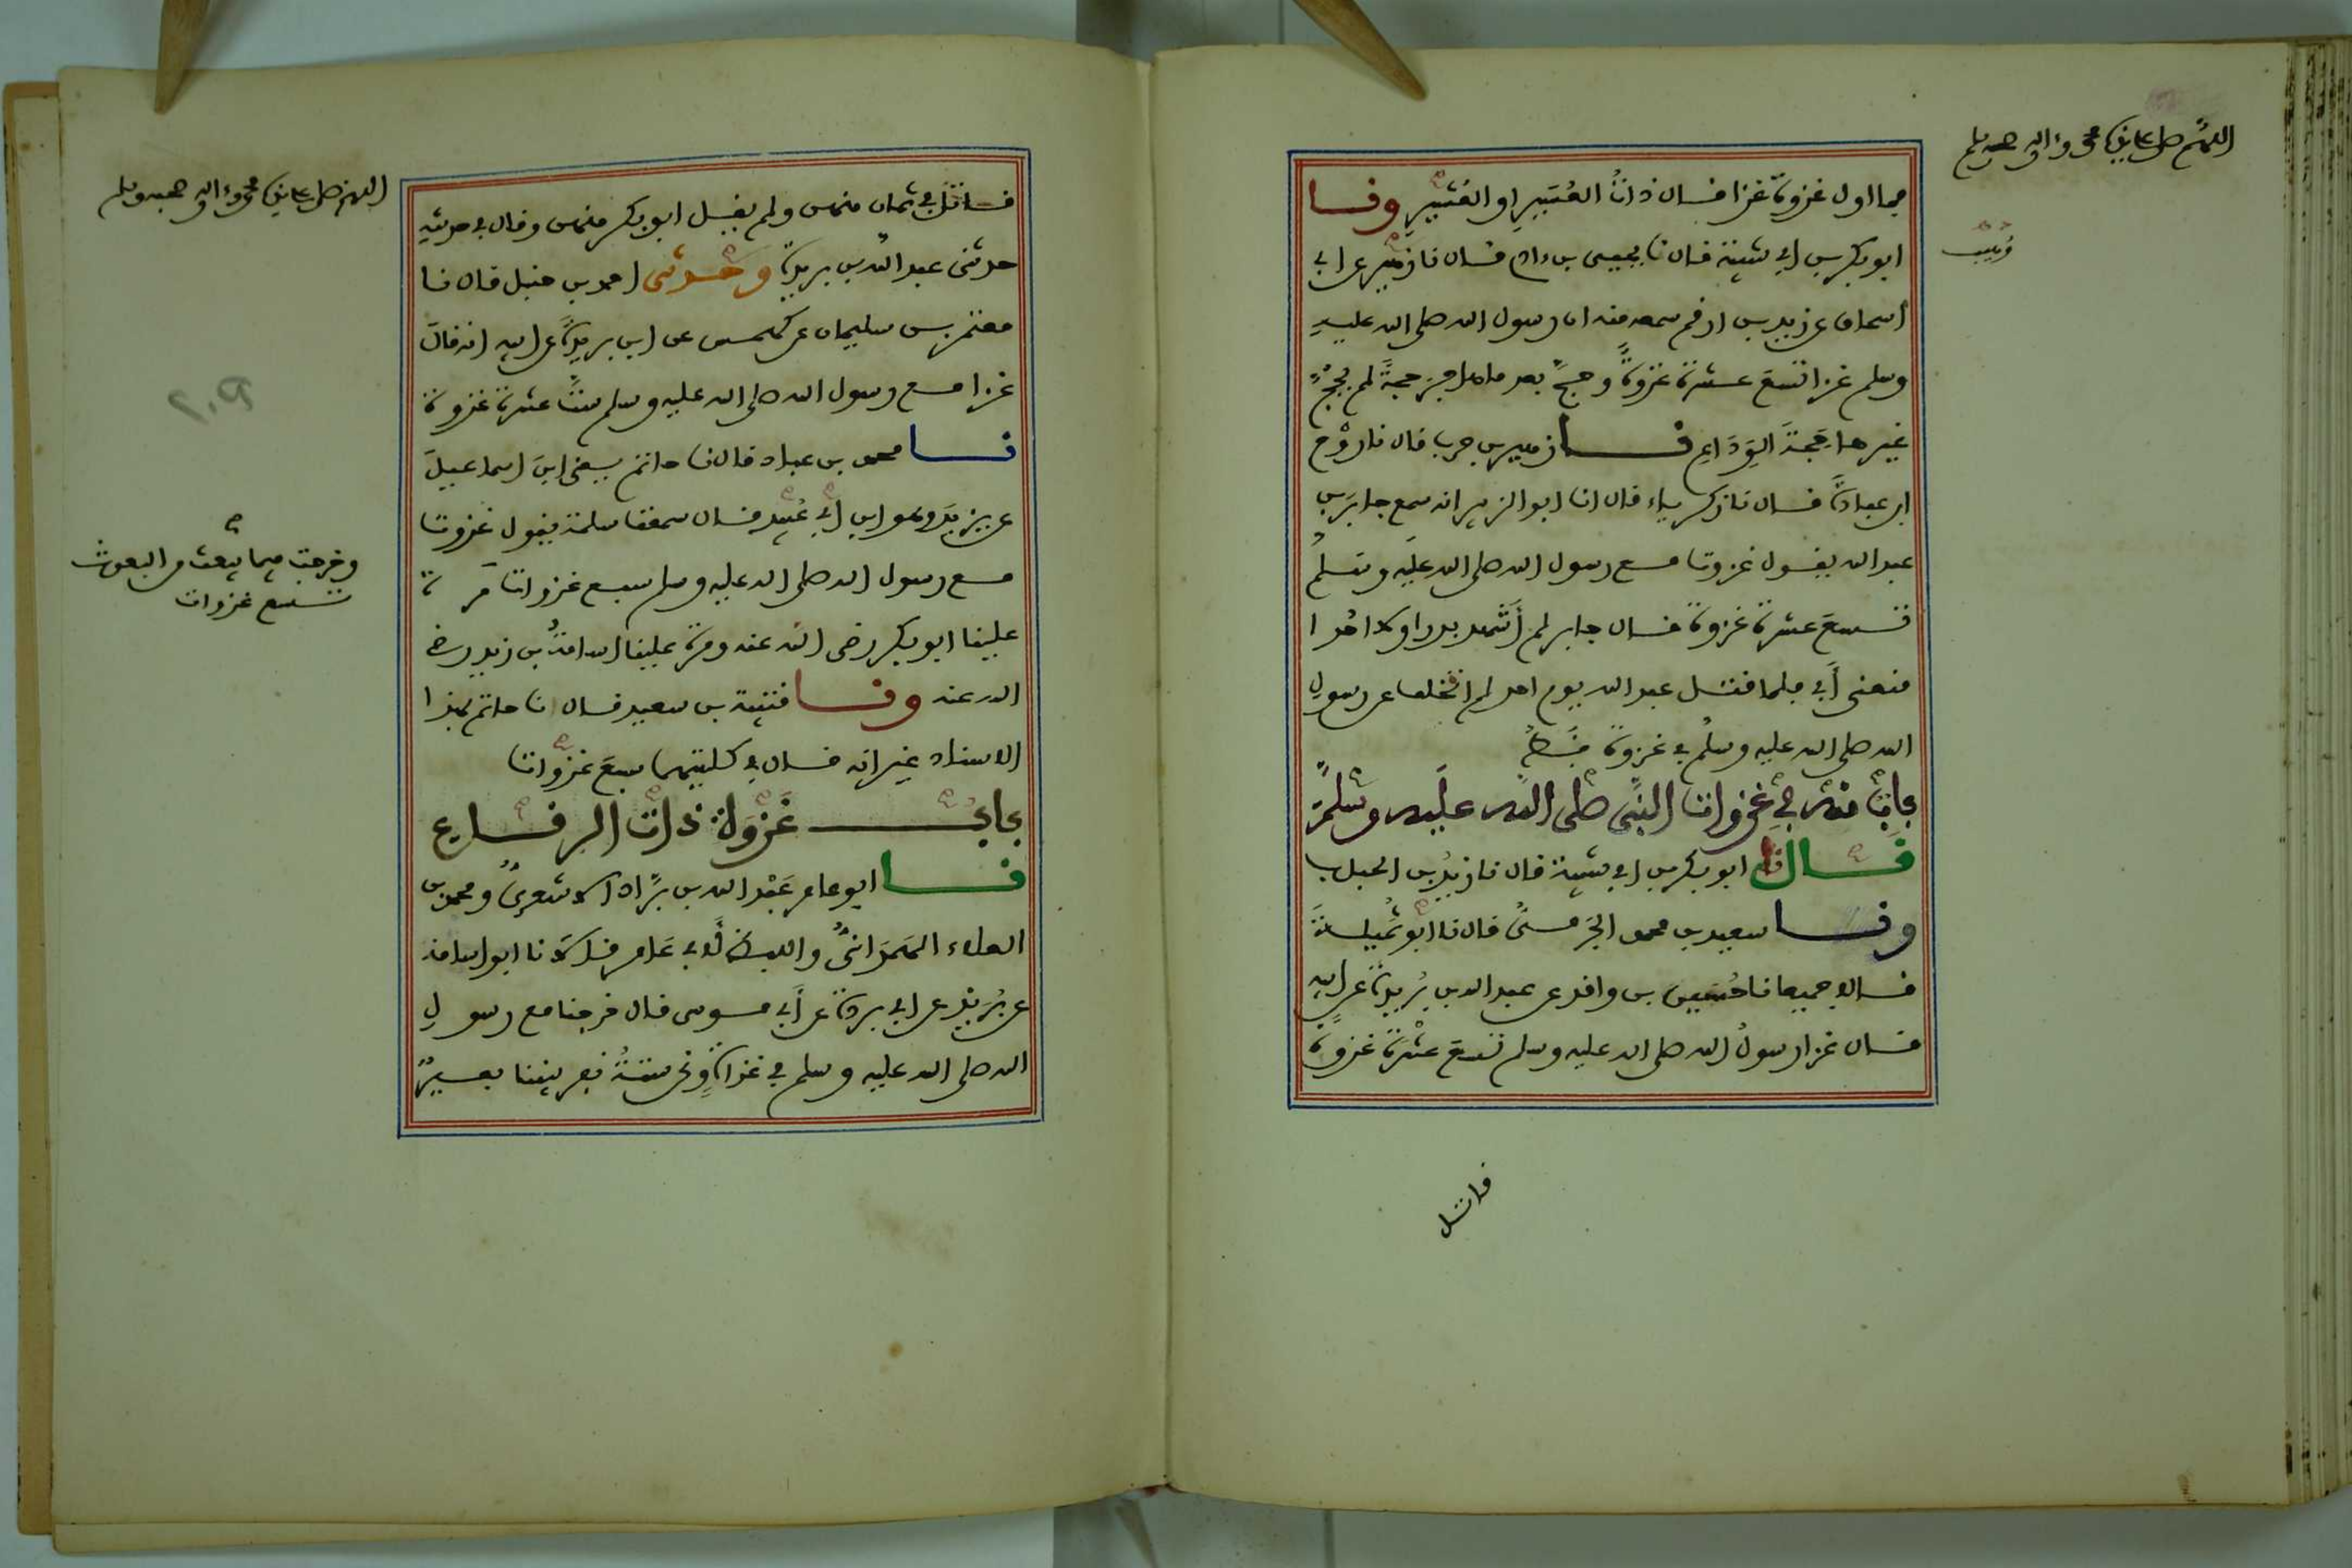 اللهم صل على سيدنا محمد وءاله وصحبه وسلم
فما اول غزوة غزا فـال ذاتُ العُسَيرِ او العُشَيرِ ونـا
وهيب
ابو بكر بن ابي شيبة قال نا يحيى بن ءادم قـال نا زهير عن ابي
اسحاق عن زيد بن ارقم سمعه منه ان رسول الله صلى الله عليه
وسلم غزا تسعَ عشرةَ غزوةً وحجَّ بعد ما هاجر حجةً لم يحُجَّ
غيرها حجةَ الوَدَاعِ نـا زهير بن حرب قال نا رَوْح
ابن عبادةَ قـال نا زكرياء قال انا ابو الزبير انه سمع جابرَ بن
عبد الله يقـول غزوت مـع رسول الله صلى الله عليه وسلم
تـسعَ عشرةَ غزوة قـال جابر لم أشهد بدرا ولا احدا
منعني أَبي فلما قتـل عبد الله يوم احد لم اتخلف عن رسول
الله صلى الله عليه وسلم في غزوة قَـطُّ
باب منه في غزوات النبي صلى الله عليه وسلم
قـال نا ابو بكر بن ابي شيبة قال نا زيدُ بن الحباب
ونـا سعيد بن محمد الجَرميُّ قال نا ابو تُمَيلـةَ
قـالا جميعا نا حُسَين بن واقد عن عبد الله بن بُريدةَ عن ابيه
قـال غزا رسولُ الله صلى الله عليه وسلم تسعَ عشْرَةَ غزوةً
قاتـل
اللهم صل على سيدنا محمد وءاله وصحبه وسلم
قـاتَلَ في ثمان منهن ولم يقـل ابو بكر منهن وقال في حديثه
حدثني عبد الله بن بريدة وحـدثني احمد بن حنبل قال نـا
معتمر بن سليمان عن كهمس عن ابن بريدةَ عن ابيه انه قال
غزا مـع رسول الله صلى الله عليه وسلم ستَّ عشرةَ غزوة
نـا محمد بن عباد قال نا حاتم يـعني ابنَ اسماعيلَ
عن يزيدَ وهو ابن أَبي عُبَيد قـال سمعت سلمة يقول غزوت
مـع رسول الله صلى الله عليه وسلم سبع غزوات مَرة
وخرجت فيما يبعث من البعوث
تـسع غزوات
علينا ابو بكر رضى الله عنه ومرة علينا اسامةُ بن زيد رضى
الله عنه ونـا قتيبة بن سعيد قـال نا حاتم بهذا
الاسناد غير انه قـال في كلتيهما سبعَ غزوات
بابُ غَزْوَة ذات الرقـاع
نـا ابو عامر عَبْد الله بن برَّاد الاشعريُّ ومحمد بن
العلاء الهَمْدانيُّ واللفظ لأبي عَامر قـالا نا ابو اسامة
عن بُرَيْد عن ابي بردةَ عن أَبي مـوسى قال خرجنا مع رسول
الله صلى الله عليه وسلم في غزاةٍ ونحن ستةُ نفر بيننا بعـيرٌ